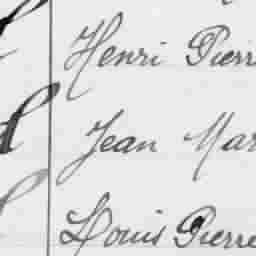 Henri Pierr
Jean Mar
Louis Pierre